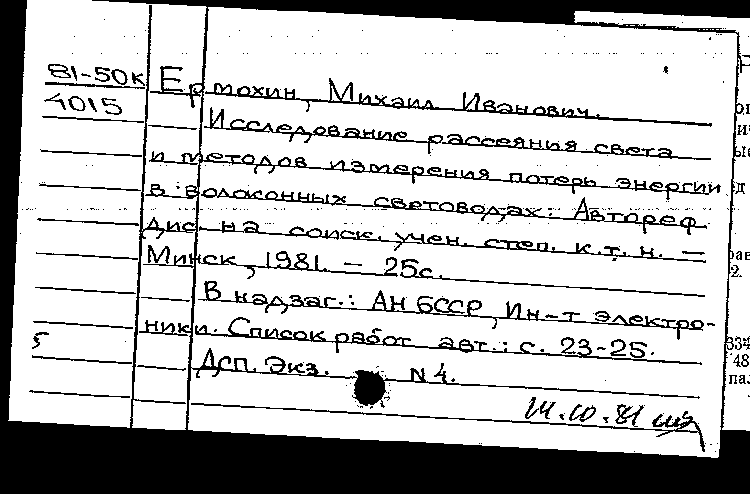 81-50к Ермохин, Михаил Иванович.
4015
Исследование рассеяния света
и методов измерения потерь энергии
в волоконных световодах: Автореф.
дис. на соиск. учен. степ. к.т.н. –
Минск, 1981. – 25с.
В надзаг.: АН БССР, Ин-т электро-
ники. Список работ авт.: с. 23-25.
Дсп. Экз. N 4.
14.10.81